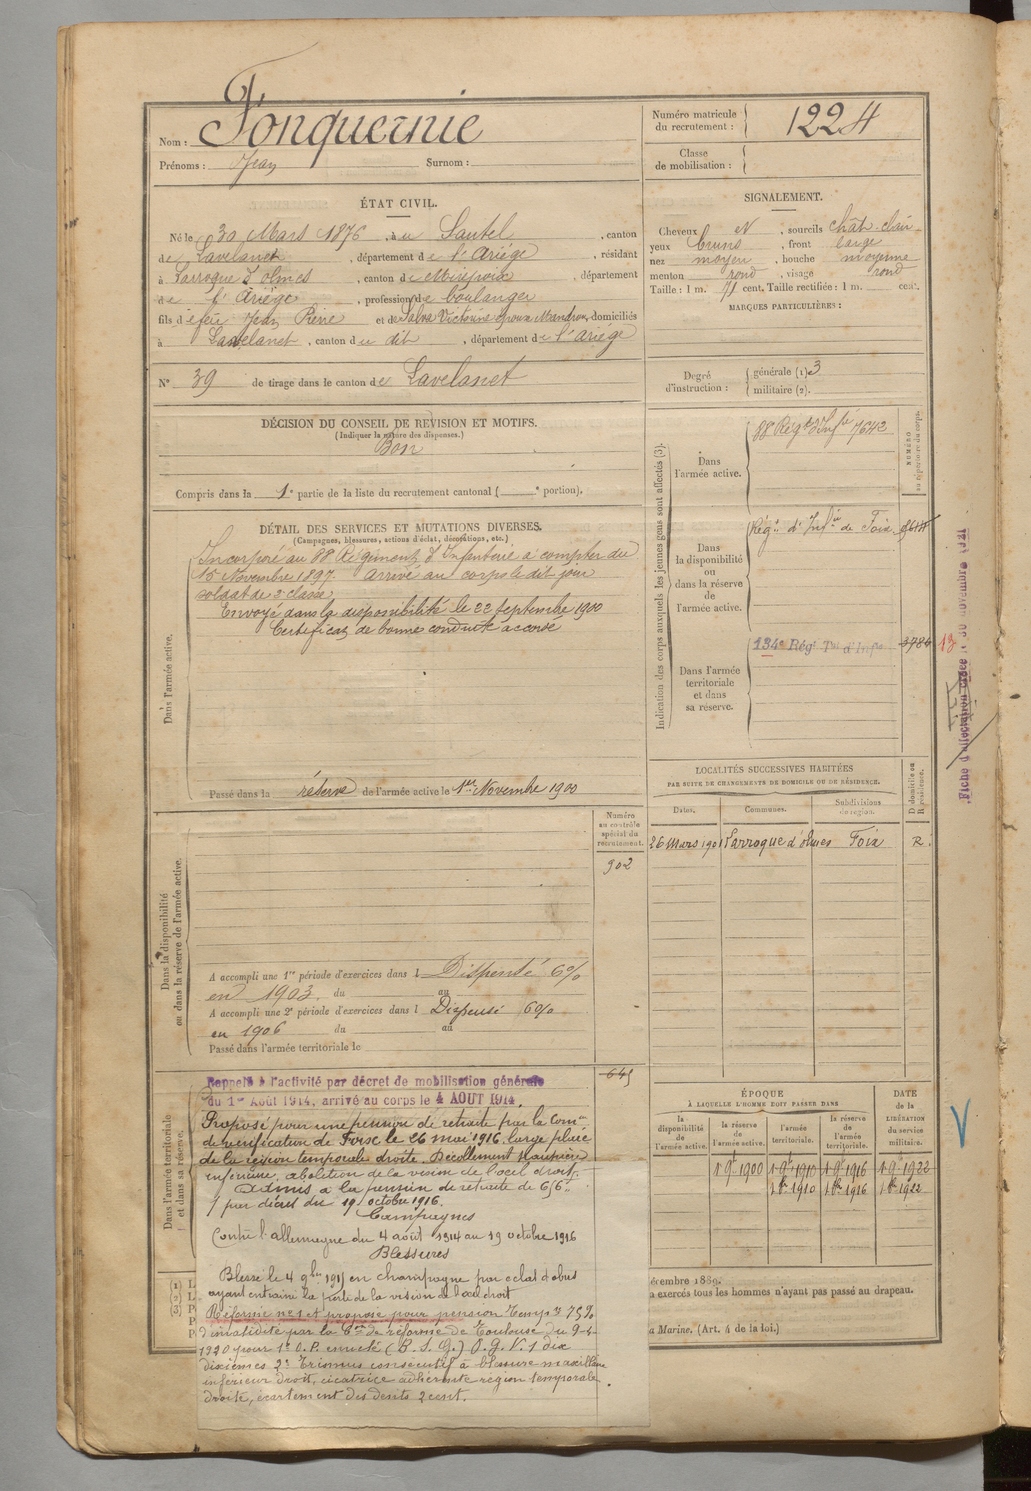 Nom : Fonquernie
Prénoms : Jean Surnom :
Numéro matricule du recrutement : 1224
Classe de mobilisation :
ÉTAT CIVIL.
Né le 30 Mars 1876, à u Sautel, canton
de Lavelanet, département de l'Ariège, résidant
à Larroque d'olmes, canton de Mirepoix, département
de l'Ariège, profession de boulanger
fils de feu Jean Pierre et de Salva Victorine époux Mandrou, domiciliés
à Lavelanet, canton du dit, département de l'Ariège
N° 39 de tirage dans le canton de Lavelanet
SIGNALEMENT.
Cheveux et, sourcils chât-clair
yeux bruns, front large
nez moyen, bouche moyenne
menton rond, visage rond
Taille : 1 m. 71 cent. Taille rectifiée : 1 m. cent.
MARQUES PARTICULIÈRES :
Degré d'instruction : générale (1) 3
militaire (2).
DÉCISION DU CONSEIL DE REVISION ET MOTIFS.
(Indiquer la nature des dispenses.)
Bon
Compris dans la 1e partie de la liste du recrutement cantonal ( e portion).
DÉTAIL DES SERVICES ET MUTATIONS DIVERSES.
(Campagnes, blessures, actions d'éclat, décorations, etc.)
Dans l'armée active.
Incorporé au 88 Régiment d'Infanterie à compter du
15 Novembre 1897. Arrivé au corps le dit jour
soldat de 2 classe
Envoyé dans la disponibilité le 22 septembre 1900
Certificat de bonne conduite accordé
Passé dans la réserve de l'armée active le 1er Novembre 1900
Indication des corps auxquels les jeunes gens sont affectés (3).
NUMÉRO au répertoire du corps.
Dans l'armée active.
88 Régt d'Infie 7642
Dans la disponibilité ou dans la réserve de l'armée active.
Régt d'Infie de Foix
Dans l'armée territoriale et dans sa réserve.
134e Régt Tal d'Infie 3784
13
Fiche d'affectation créée le 30 novembre 1921
LOCALITÉS SUCCESSIVES HABITÉES
PAR SUITE DE CHANGEMENTS DE DOMICILE OU DE RÉSIDENCE.
Dates. Communes. Subdivisions de région. D domicile ou R résidence.
26 Mars 1901 Larroque d'olmes Foix R.
Numéro au contrôle spécial du recrutement.
902
Dans la disponibilité ou dans la réserve de l'armée active.
A accompli une 1re période d'exercices dans l Dispensé 6%
en 1903. du au
A accompli une 2e période d'exercices dans l Dispensé 6%
en 1906 du au
Passé dans l'armée territoriale le
645
Dans l'armée territoriale et dans sa réserve.
Rappelé à l'activité par décret de mobilisation générale
du 1er Août 1914, arrivé au corps le 4 AOUT 1914.
Proposé pour une pension de retraite par la Comon
de vérification de Foix le 26 mai 1916. large plaie
de la région temporale droite. Décollement
inférieure, abolition de la vision de l'oeil droit.
Admis à la pension de retraite de
par décret du 19 octobre 1916.
Campagnes
Contre l'allemagne du 4 août 1914 au 19 octobre 1916
Blessures
Blessé le 4 9bre 1915 en champagne par eclat d'obus
ayant entrainé la perte de la vision de l'oeil droit
Réformé no 1 et proposé pour pension Tempre 75%
d'invalidité par la Con de réforme de Toulouse du 9-4-
1920 pour 1° O. D. enuclé (B. S. G.) O. G. V. 1 dix
dixièmes 2° Trismus consécutif à blessure maxillaire
inférieur droit, cicatrice adhérente région temporale
droite, écartement des dents 2 cent.
ÉPOQUE
À LAQUELLE L'HOMME DOIT PASSER DANS
la disponibilité de l'armée active. la réserve de l'armée active. l'armée territoriale. la réserve de l'armée territoriale.
DATE de la LIBÉRATION du service militaire.
1 9bre 1900 1 9bre 1910 1 9bre 1916 1 9bre 1922
1 8bre 1910 1 8bre 1916 1 8bre 1922
décembre 1889.
a exercés tous les hommes n'ayant pas passé au drapeau.
la Marine, (Art. 4 de la loi.)
(1) L
(2) L
(3) P
P
P